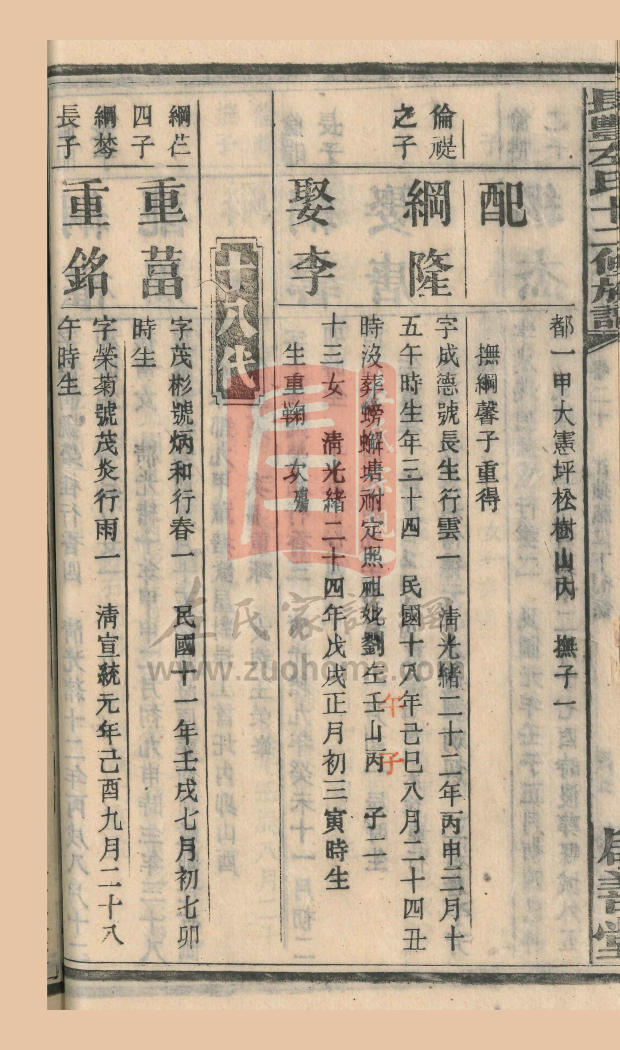 長豐左氏十二修族譜
都一甲大憲坪松樹山內 二 撫子一
配
撫綱馨子重得
倫禔
之子
綱隆
字成德號長生行雲一 清光緒二十二年丙申二月十
五午時生年三十四 民國十八年己巳八月二十四丑
時沒葬螃蠏塘祔定照祖妣劉左壬山丙 子二
午子
娶李
十三女 清光緒二十四年戊戌正月初三寅時生
生重鞠 次
十八代
綱仁
四子
重菖
字茂彬號炳和行春一 民國十一年壬戌七月初七卯
時生
綱棽
長子
重銘
字榮菊號茂炎行雨一 清宣統元年己酉九月二十八
午時生
左氏家譜網
www.zuohome.com